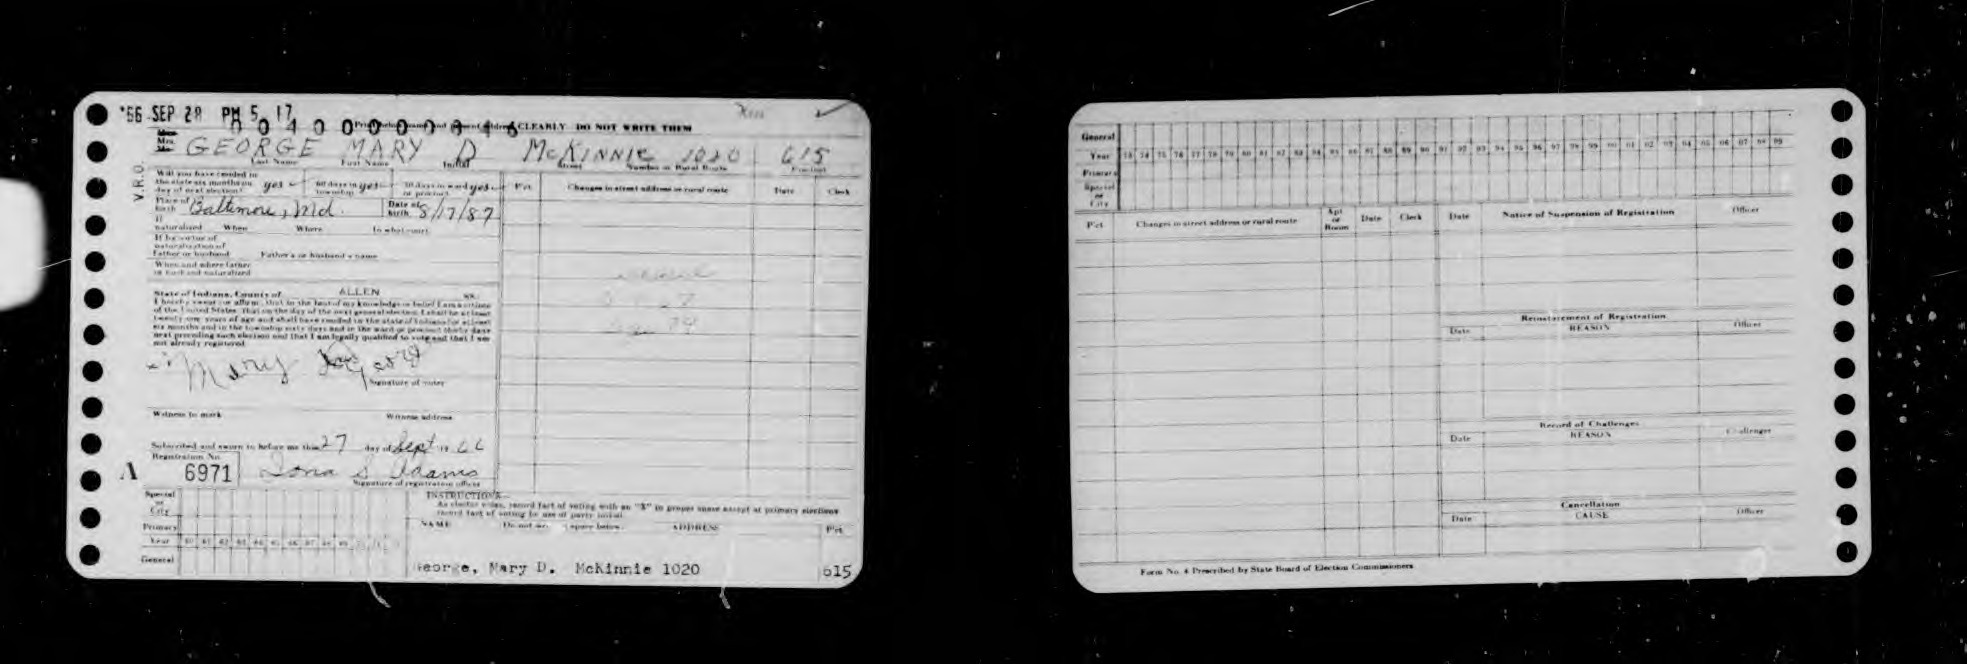 '66 SEP 28 PM 5 17
CLEARLY DO NOT WRITE THEM
Mrs. GEORGE MARY D McKINNIE 1020 615
Last Name First Name Initial Street Number or Rural Route Precinct
V.R.O.
Will you have resided in the state six months on day of next election? yes 60 days in township yes 30 days in ward or precinct yes
Pct. Changes in street address or rural route Date Clerk
Place of birth Baltimore, Md. Date of birth 8/17/87
If naturalized When Where In what court
If by virtue of naturalization of father or husband Father's or husband's name
When and where father or husband naturalized
State of Indiana, County of ALLEN SS:
I hereby swear or affirm, that to the best of my knowledge or belief I am a citizen
of the United States. That on the day of the next general election, I shall be at least
twenty-one years of age and shall have resided in the state of Indiana for at least
six months and in the township sixty days and in the ward or precinct thirty days
next preceding such election and that I am legally qualified to vote and that I am
not already registered.
Mary George
Signature of voter
Witness to mark Witness address
Subscribed and sworn to before me this 27 day of Sept 1966
Registration No.
A 6971
Adams
Signature of registration officer
INSTRUCTIONS
As elector votes, record fact of voting with an "X" in proper space except at primary elections
record fact of voting by use of party initial.
Special or City
Primary
Year 60 61 62 63 64 65 66 67 68 69
General
NAME ADDRESS Pct.
George, Mary D. McKinnie 1020 615
General
Year 73 74 75 76 77 78 79 80 81 82 83 84 85 86 87 88 89 90 91 92 93 94 95 96 97 98 99 00 01 02 03 04 05 06 07 08 09
Primary
Special or City
Pct. Changes in street address or rural route Apt or Room Date Clerk
Date Notice of Suspension of Registration Officer
Reinstatement of Registration
Date REASON Officer
Record of Challenges
Date REASON Challenger
Cancellation
Date CAUSE Officer
Form No. 4 Prescribed by State Board of Election Commissioners